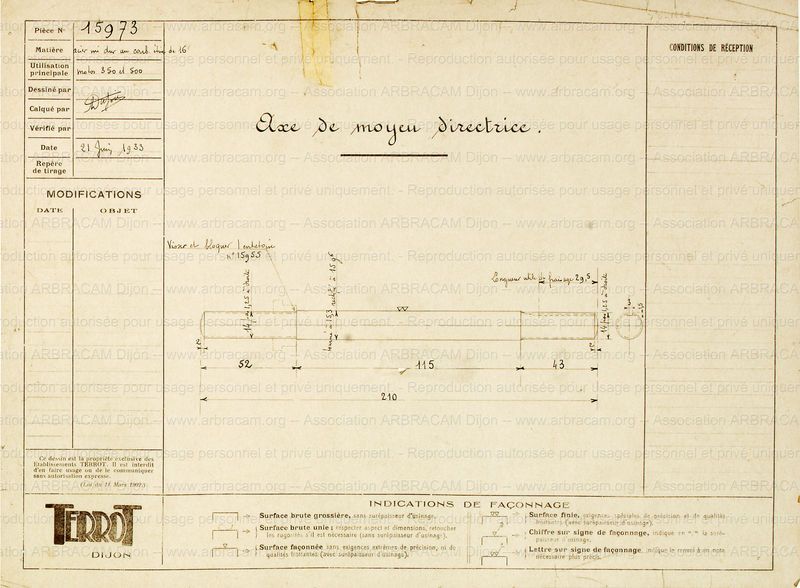 Pièce N° 15973
Matière acier mi dur au carb. étiré de 16
Utilisation
principale motos 350 et 500
Dessiné par
Calqué par
Vérifié par
Date 21 Juin 1933
Repère
de tirage
MODIFICATIONS
DATE OBJET
CONDITIONS DE RÉCEPTION
Axe de moyeu directrice.
Visser et bloquer l'entretoise
n° 15955
Longueur utile de filetage 29,5
52
115
43
210
Ce dessin est la propriété exclusive des
Etablissements TERROT. Il est interdit
d'en faire usage ou de le communiquer
sans autorisation expresse.
(Loi du 11 Mars 1902)
TERROT
DIJON
INDICATIONS DE FAÇONNAGE
Surface brute grossière, sans surépaisseur d'usinage.
Surface brute unie ; respecter aspect et dimensions, retoucher
les rugosités s'il est nécessaire (sans surépaisseur d'usinage).
Surface façonnée sans exigences extrêmes de précision, ni de
qualités frottantes (avec surépaisseur d'usinage).
Surface finie, exigences spéciales de précision et de qualités
frottantes (avec surépaisseur d'usinage).
Chiffre sur signe de façonnage, indique en m/m la surépaisseur d'usinage.
Lettre sur signe de façonnage, indique le renvoi à un note
nécessaire plus précis.
www.arbracam.org -- Association ARBRACAM Dijon --
Reproduction autorisée pour usage personnel et privé uniquement. -